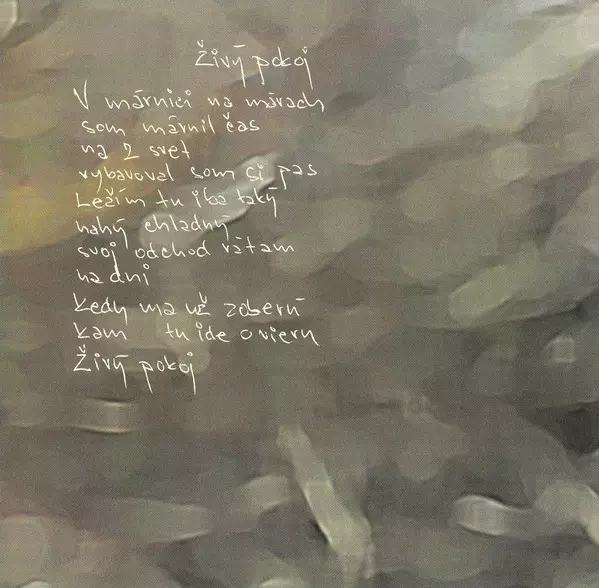 Živý pokoj
V márnici na márach
som márnil čas
na 2 svet
vybavoval som si pas
Ležím tu iba taký
nahý chladný
svoj odchod rátam
na dni
Kedy ma už zoberú
kam tu ide o vieru
Živý pokoj